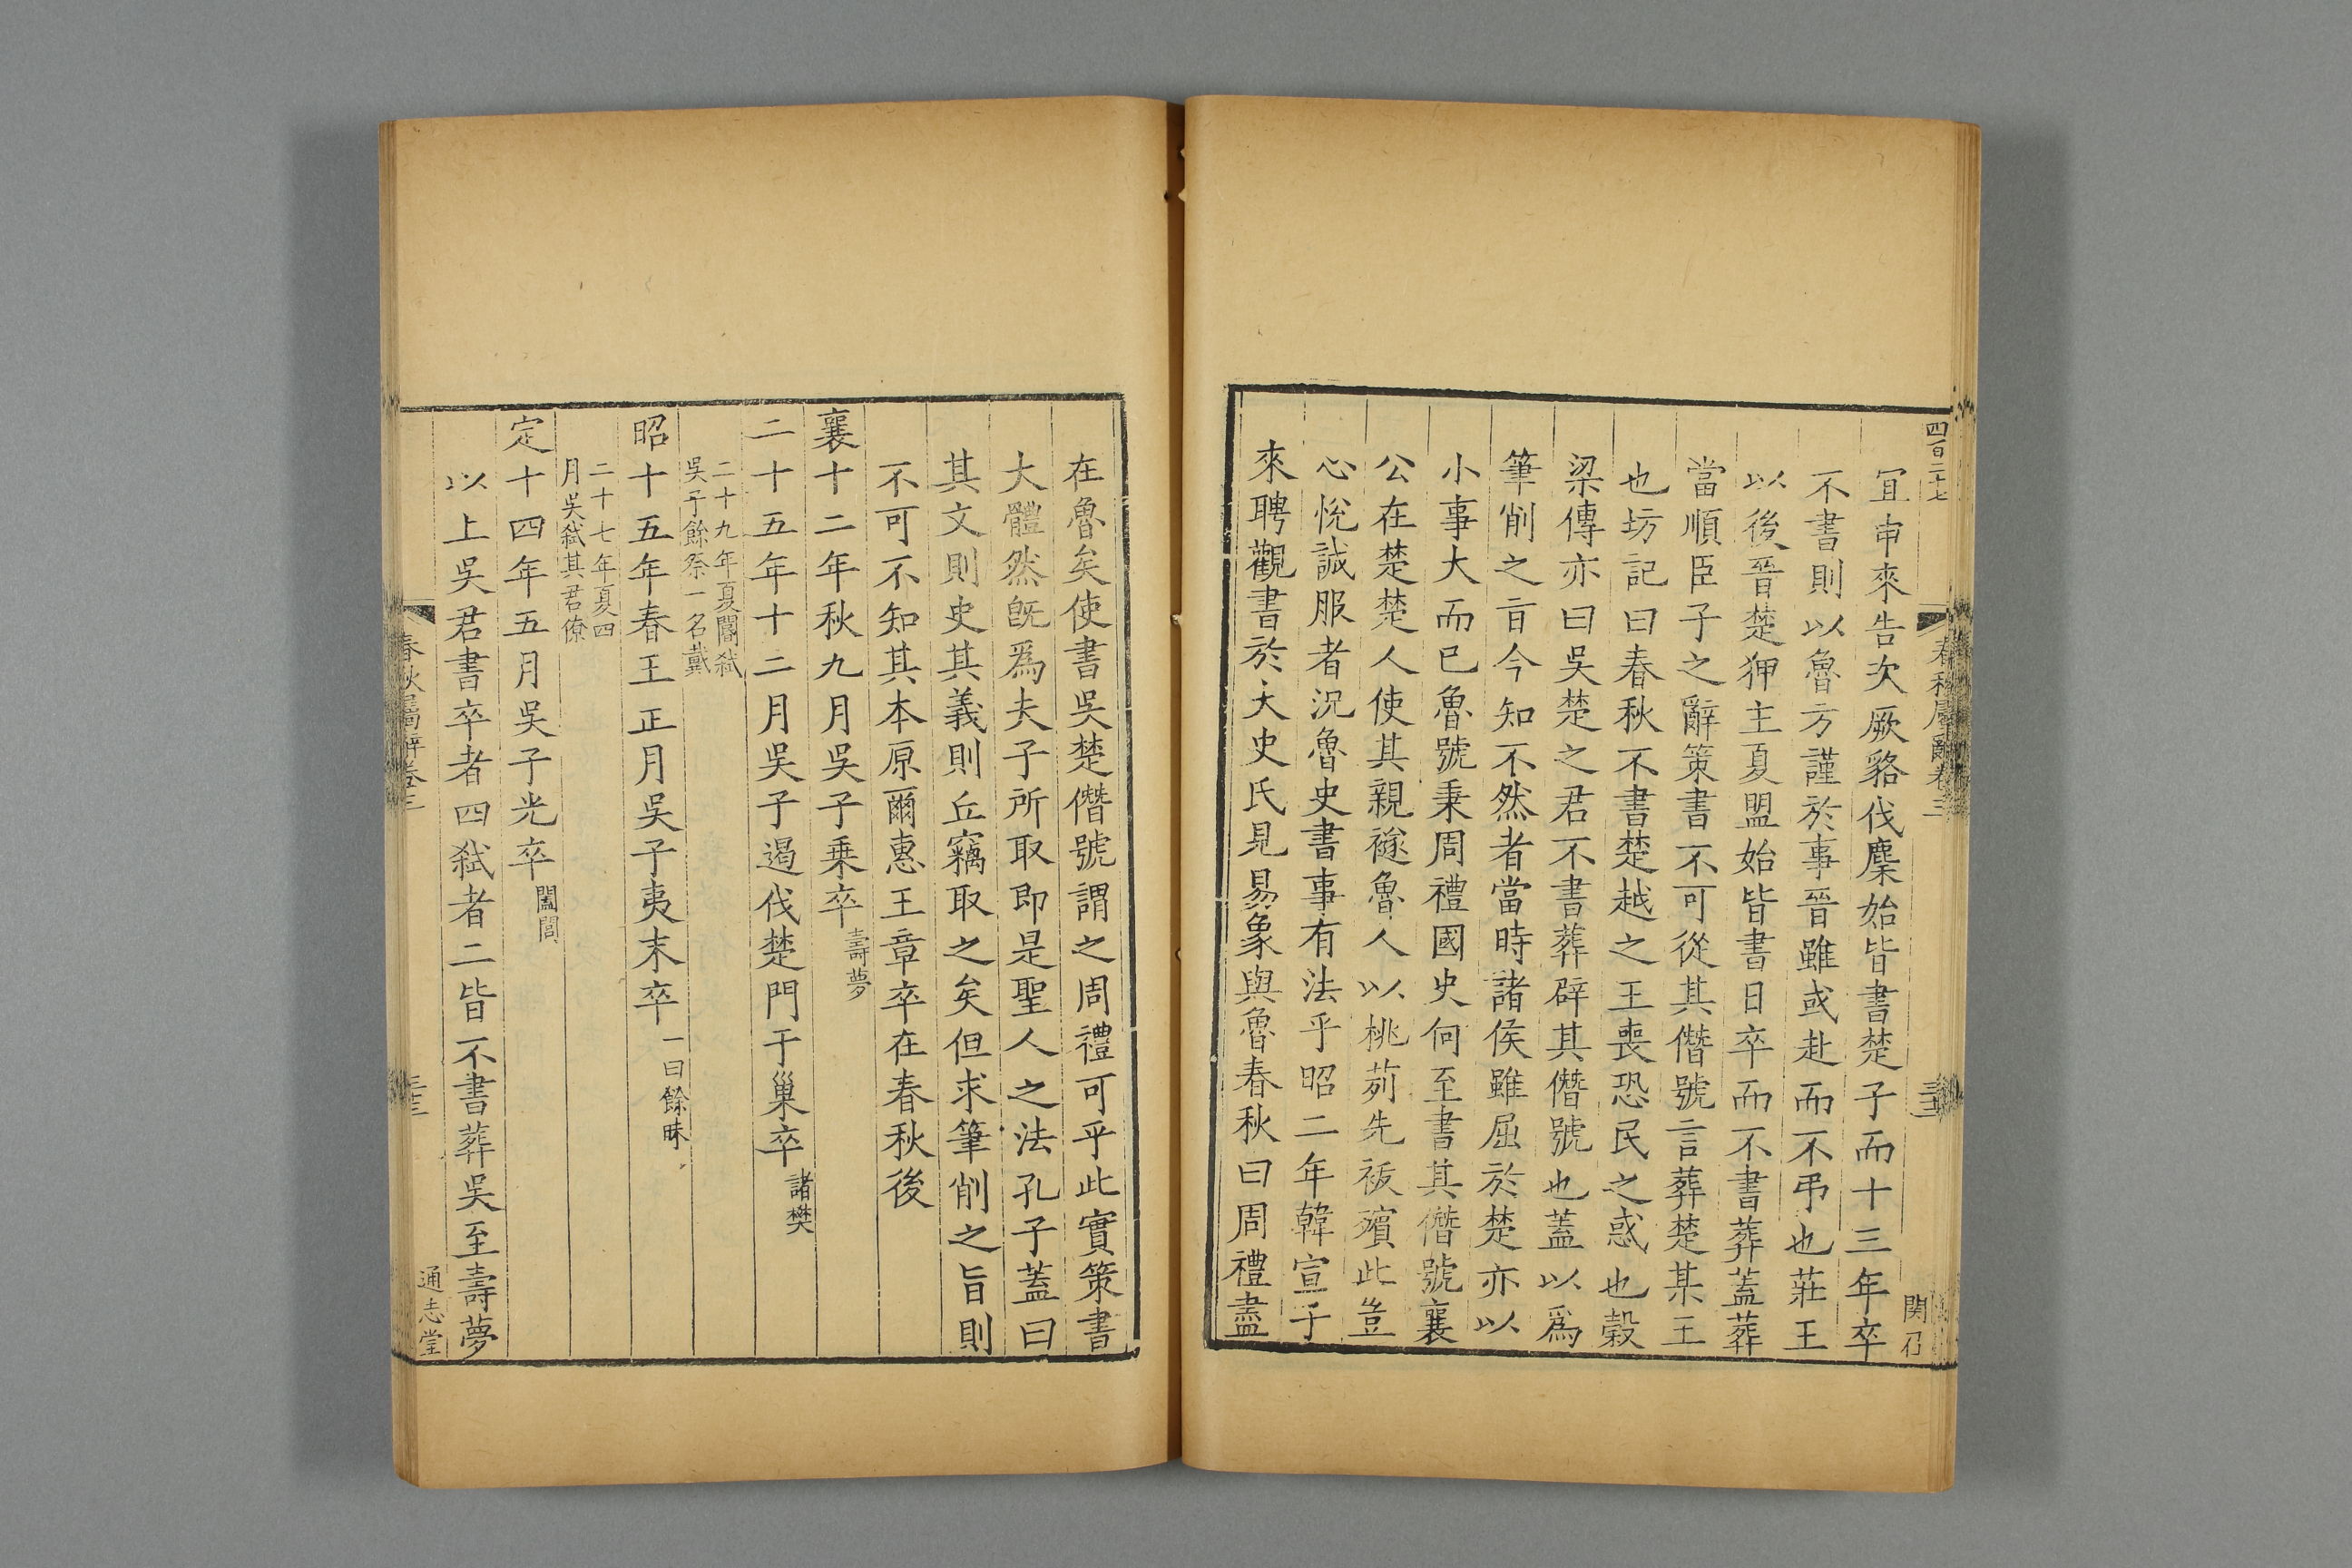 四百二十七
春秋屬辭卷三
宜申來告次厥貉伐麇始皆書楚子而十三年卒
不書則以魯方謹於事晉雖或赴而不弔也莊王
以後晉楚狎主夏盟始皆書日卒而不書葬蓋葬
當順臣子之辭策書不可從其僭號言葬楚某王
也坊記曰春秋不書楚越之王喪恐民之惑也穀
梁傳亦曰吳楚之君不書葬辟其僭號也蓋以爲
筆削之旨今知不然者當時諸侯雖屈於楚亦以
小事大而已魯號秉周禮國史何至書其僭號襄
公在楚楚人使其親襚魯人以桃茢先祓殯此豈
心悅誠服者況魯史書事有法乎昭二年韓宣子
來聘觀書於大史氏見易象與魯春秋曰周禮盡
在魯矣使書吳楚僭號謂之周禮可乎此實策書
大體然旣爲夫子所取即是聖人之法孔子蓋曰
其文則史其義則丘竊取之矣但求筆削之旨則
不可不知其本原爾惠王章卒在春秋後
襄十二年秋九月吳子乗卒壽夢
二十五年十二月吳子遏伐楚門于巢卒諸樊
二十九年夏閽弑
吳子餘祭一名戴
昭十五年春王正月吳子夷末卒一曰餘眛
二十七年夏四
月吳弑其君僚
定十四年五月吳子光卒闔閭
以上吳君書卒者四弑者二皆不書葬吳至壽夢
春秋屬辭卷三
通志堂